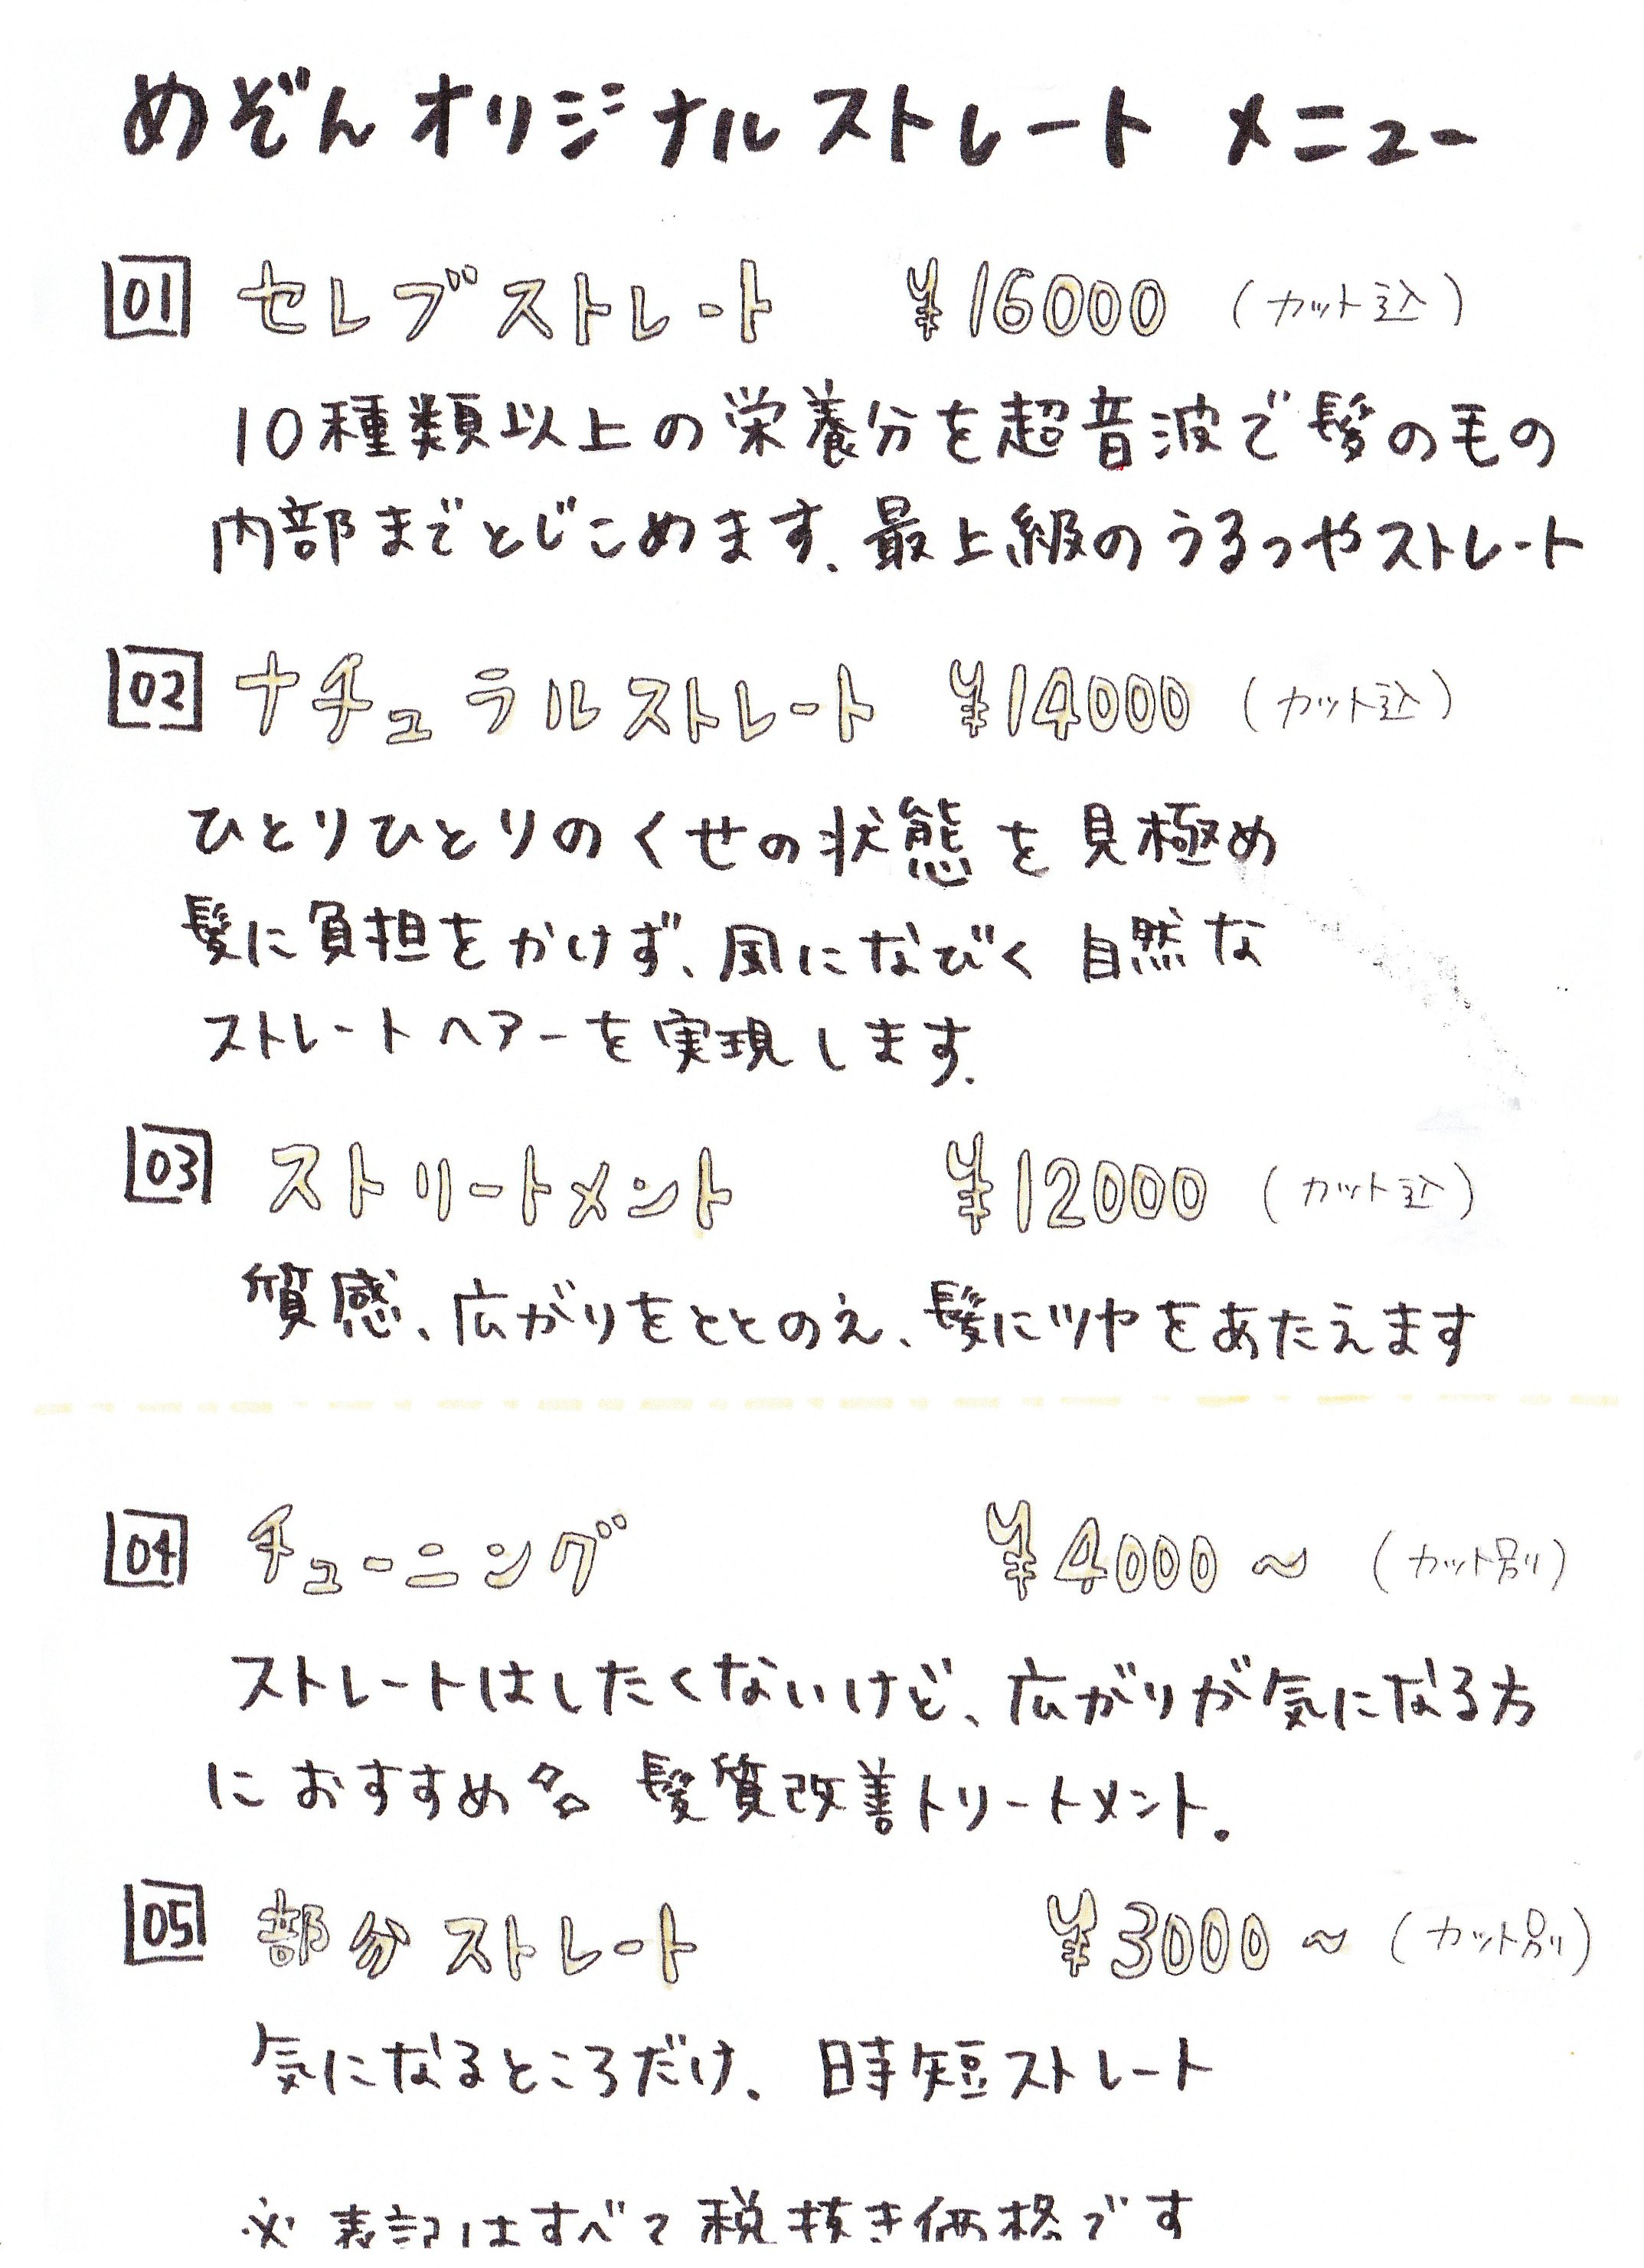 めぞんオリジナルストレート メニュー
01 セレブストレート ¥16000 (カット込)
10種類以上の栄養分を超音波で髪の毛の
内部までとじこめます.最上級のうるつやストレート
02 ナチュラルストレート ¥14000 (カット込)
ひとりひとりのくせの状態を見極め
髪に負担をかけず、風になびく自然な
ストレートヘアーを実現します.
03 ストリートメント ¥12000 (カット込)
質感、広がりをととのえ、髪にツヤをあたえます
04 チューニング ¥4000~ (カット別)
ストレートはしたくないけど、広がりが気になる方
におすすめ 髪質改善トリートメント。
05 部分ストレート ¥3000~ (カット別)
気になるところだけ、時短ストレート
※表記はすべて税抜き価格です